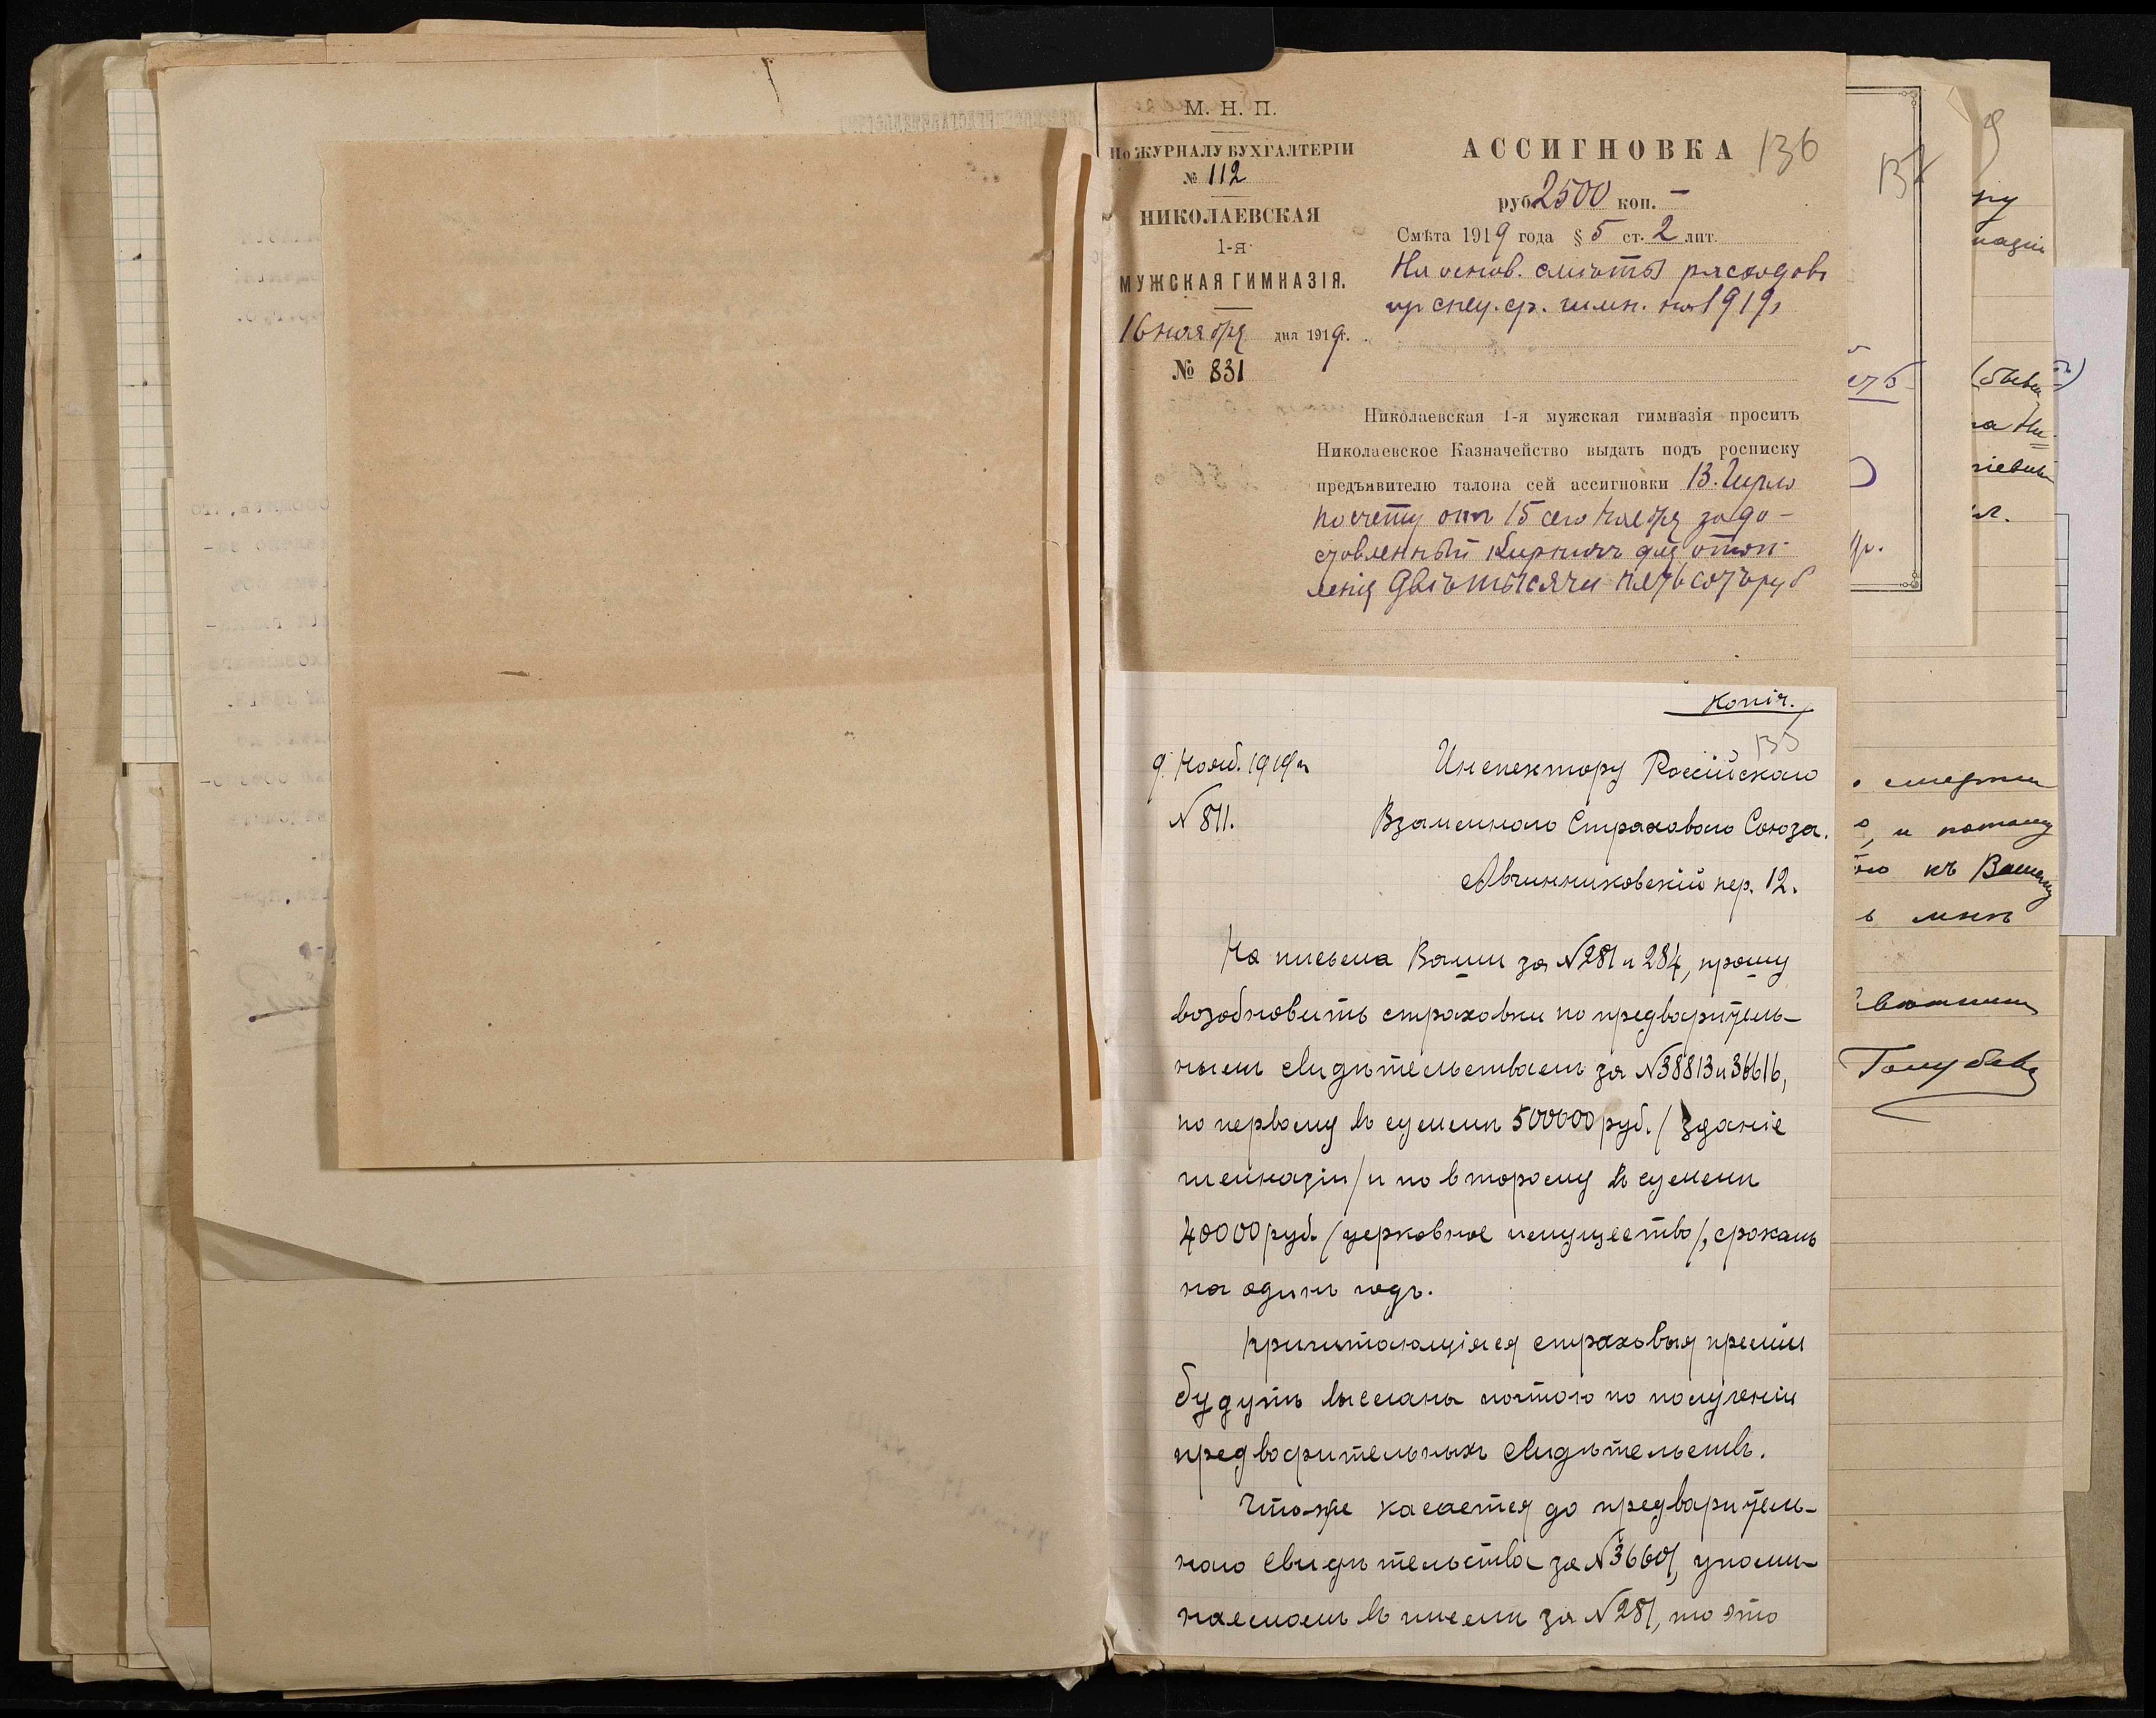 М. Н. П.
По ЖУРНАЛУ БУХГАЛТЕРІИ
№ 112
НИКОЛАЕВСКАЯ
1-я
МУЖСКАЯ ГИМНАЗІЯ.
16 ноября дня 1919 г.
№ 831
АССИГНОВКА 136
руб. 2500 коп. —
Смѣта 1919 года § 5 ст. 2 лит.
На основ. смѣты расходовъ
спец. ср. гимн. на 1919
Николаевская 1-я мужская гимназія проситъ
Николаевское Казначейство выдать подъ росписку
предъявителю талона сей ассигновки
по счету отъ 15 сего ноября за до-
ставленный кирпичъ для отоп-
ленія Двѣ тысячи пятьсотъ руб
Копія.
135
9 Нояб. 1919 г.
№ 811.
Инспектору Россійскаго
Взаимнаго Страховаго Союза.
Авчинниковскій пер. 12.
На письма Ваши за № 281 и 284, прошу
возобновить страховки по предваритель-
нымъ свидѣтельствамъ за № 38813 и 36616,
по первому въ суммѣ 500000 руб. / зданіе
гимназіи / и по второму въ суммѣ
40000 руб. / церковное имущество /, срокомъ
на одинъ годъ.
Причитающіяся страховыя преміи
будутъ высланы почтою по полученіи
предварительныхъ свидѣтельствъ.
Что же касается до предваритель-
наго свидѣтельства за № 36601, упоми-
наемомъ въ письмѣ за № 281, то это
137
къ Вашему
мнѣ
Голубева